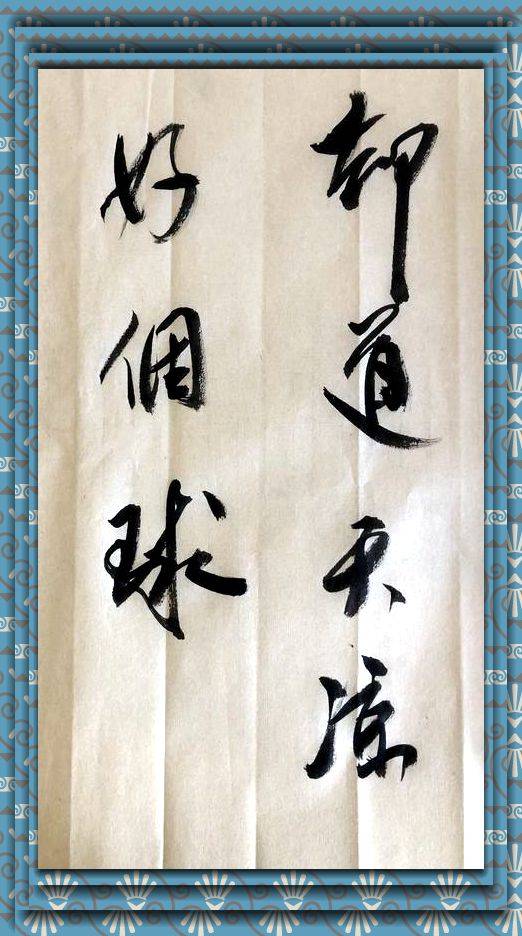 却道天凉
好個球